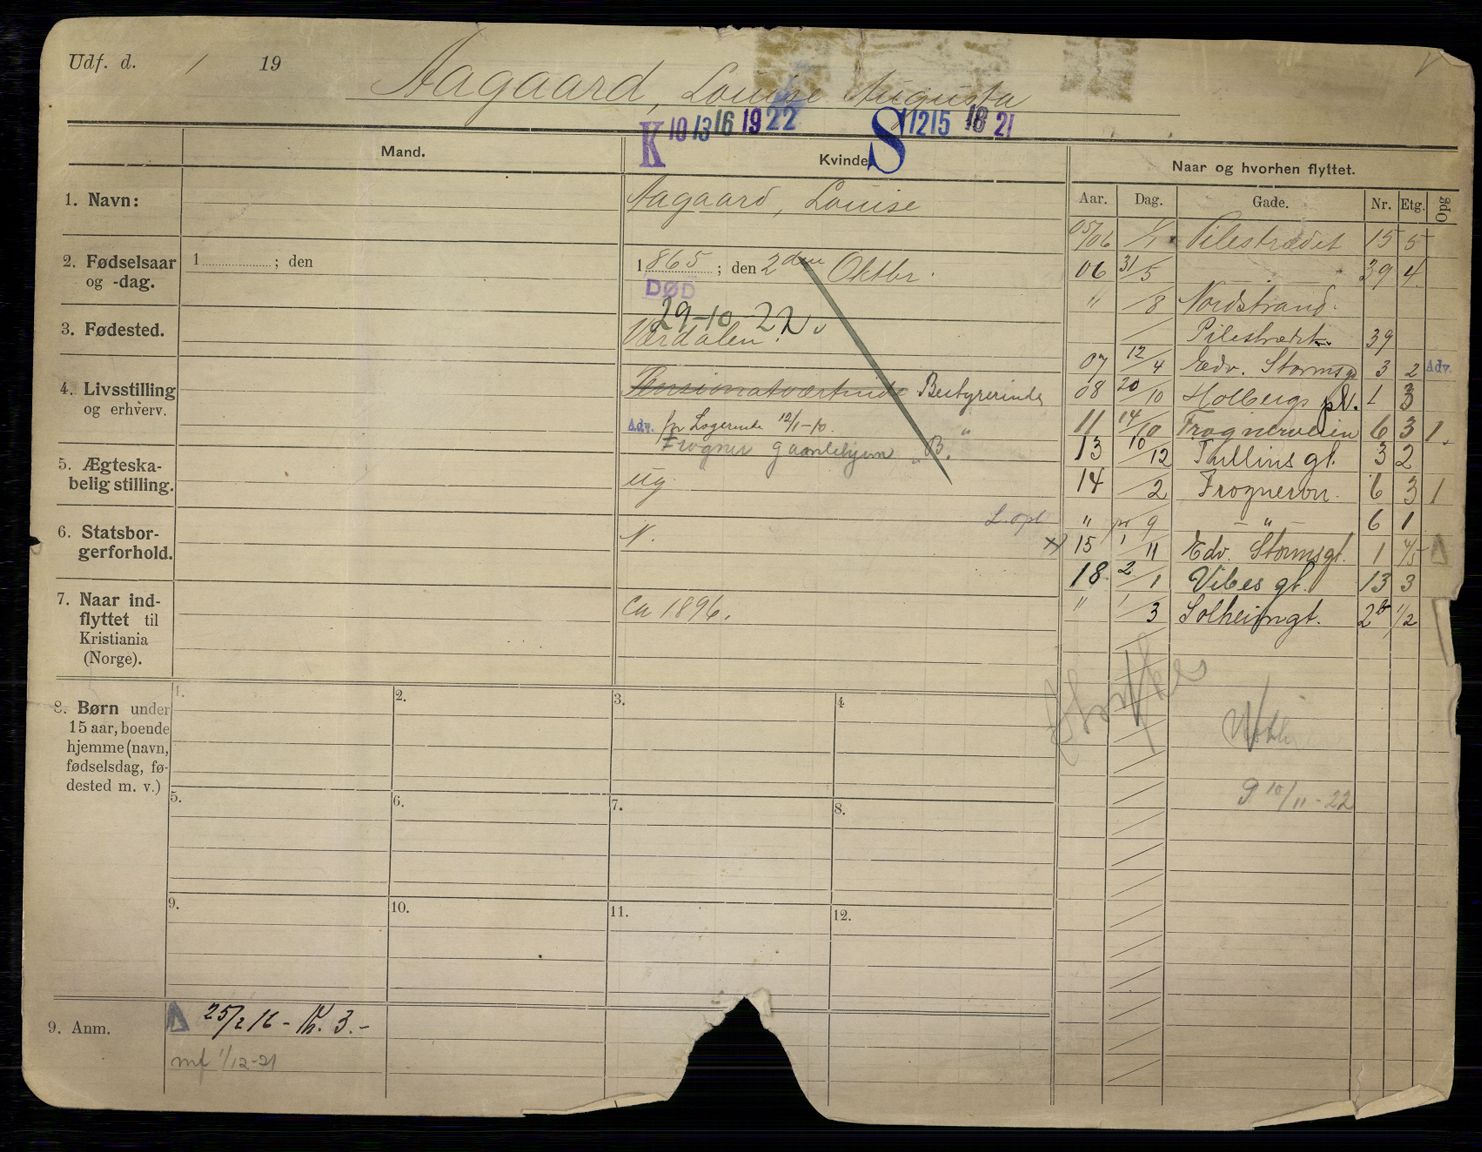 Udf. d. / 19
Aagaard, Louise Augusta
K 10 13 16 19 22 S 11 12 15 18 21
Mand. Kvinde Naar og hvorhen flyttet.
Aar. Dag. Gade. Nr. Etg. Opg
1. Navn: Aagaard, Louise
2. Fødselsaar og -dag. 1 ; den
1865 ; den 2den Oktbr.
DØD
29-10-22
3. Fødested. Værdalen.
4. Livsstilling og erhverv. Pensionatværtinde Bestyrerinde
Adv. fr Logerende 12/1-10. "
Frogner gamlehjem "B."
5. Ægteska-
belig stilling. ug
6. Statsbor-
gerforhold. N.
7. Naar ind-
flyttet til
Kristiania
(Norge). Ca 1896.
05/06 1/1 Pilestrædet 15 5
06 31/5 39 4
" /8 Nordstrand.
/ Pilestrædet 39
07 12/4 Edv. Stormsg 3 2 Adv.
08 20/10 Holbergs pl. 1 3
11 14/10 Frognerveien 6 3 1
13 10/12 Tullins gt. 3 2
14 /2 Frognervn. 6 3 1
" /9 — " — 6 1
15 1/11 Edv. Stormsgt. 1 4/5
18 2/1 Vibes gt. 13 3
" 1/3 Solheimgt. 2b 1/2
8. Børn under
15 aar, boende
hjemme (navn,
fødselsdag, fø-
dested m. v.)
1. 2. 3. 4
5. 6. 7. 8.
9. 10. 11. 12.
9 10/11-22
9. Anm. 25/2 16 - Kh. 3.-
mf 1/12-21